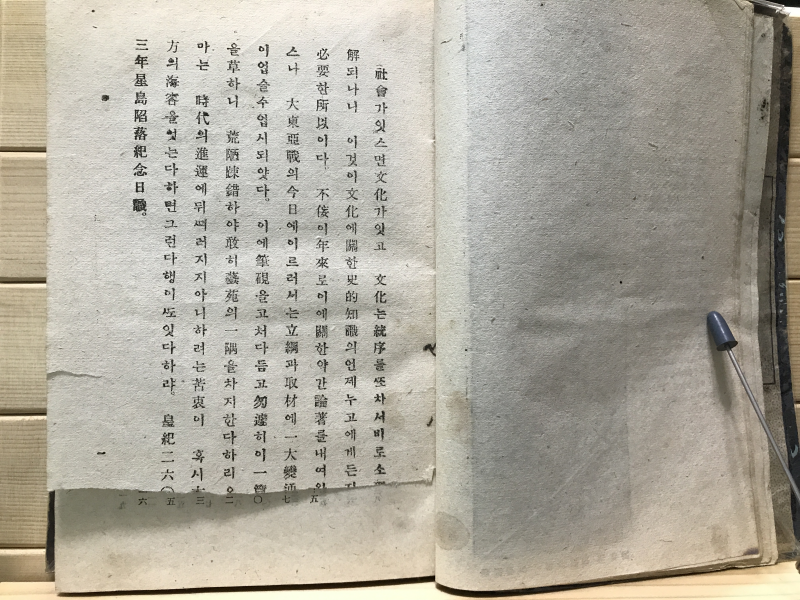 社會가잇스면文化가잇고 文化는統序를ᄯᅩ차서비로소
解되나니 이것이文化에關한史的知識의언제누고에게든지
必要한所以이다. 不侫이年來로이에關한약간論著를내여
스나 大東亞戰의今日에이르러서는立綱과取材에一大變通
이업슬수업시되얏다. 이에筆硯을고처다듬고匆遽히이一
을草하니 荒陋踈錯하야敢히藝苑의一隅을차지한다하리오
마는 時代의進運에뒤ᄯᅥ러지지아니하려는苦衷이 혹시
方의海容을엇는다하면그런다행이ᄯᅩ잇다하랴. 皇紀二六〇
三年星島陷落紀念日識。
序
一
五
七
〇
二
三
五
六